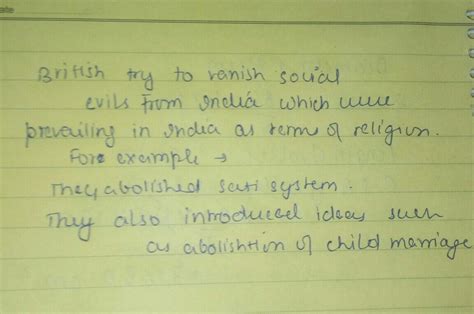 British try to vanish social
evils from India which were
prevailing in India as terms of religion.
Fore example →
They abolished sati system.
They also introduced ideas such
as abolishtion of child marriage